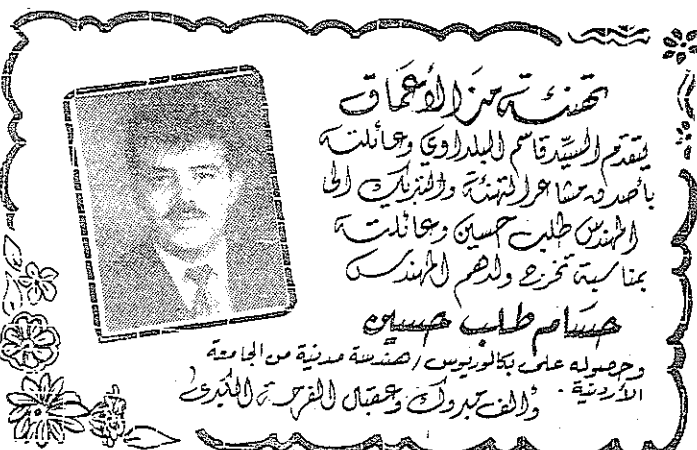 تهنئة من الأعماق
يتقدم السيد قاسم البلداوي وعائلته
بأصدق مشاعر التهنئة والتبريك الى
المهندس طلب حسين وعائلته
بمناسبة تخرج ولدهم المهندس
حسام طلب حسين
وحصوله على بكالوريوس / هندسة مدنية من الجامعة
الأردنية .
وألف مبروك وعقبال الفرحة الكبرى